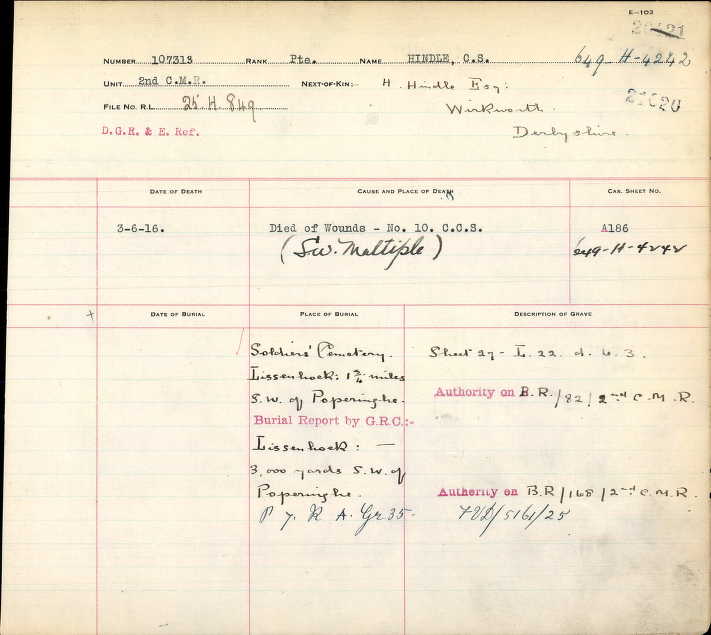 E-103
NUMBER 107313 RANK Pte. NAME HINDLE, C.S. 649-H-4242
UNIT 2nd C.M.R. NEXT-OF-KIN:- H. Hindle Esq:
FILE NO. R.L. 25.H.849 Wirkworth.
D.G.R. & E. Ref. Derbyshire.
DATE OF DEATH CAUSE AND PLACE OF DEATH CAS. SHEET NO.
3-6-16. Died of Wounds - No. 10. C.C.S. A186
(Sw. Multiple) 649-H-4242
DATE OF BURIAL PLACE OF BURIAL DESCRIPTION OF GRAVE
Soldiers' Cemetery. Sheet 27- L. 22. d. 6. 3.
Lissenhoek: 1 3/4 miles
S.W. of Poperinghe. Authority on B.R./82/2nd C.M.R.
Burial Report by G.R.C.:-
Lissenhoek: —
3,000 yards S.W. of
Poperinghe. Authority on B.R/168/2nd C.M.R.
R A. Gr 35.